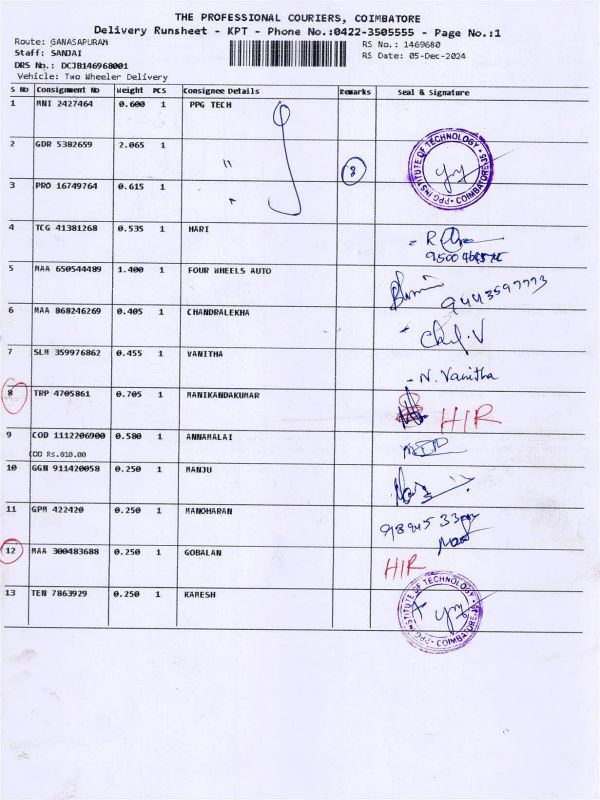 THE PROFESSIONAL COURIERS, COIMBATORE
Delivery Runsheet - KPT - Phone No.:0422-3505555 - Page No.:1
Route: GANASAPURAM
RS No.: 1469680
Staff: SANJAI
RS Date: 05-Dec-2024
DRS No.: DCJB146968001
Vehicle: Two Wheeler Delivery
S No Consignment No Weight PCS Consignee Details Remarks Seal & Signature
1 MNI 2427464 0.600 1 PPG TECH
2 GDR 5382659 2.065 1 "
3
PPG INSTITUTE OF TECHNOLOGY COIMBATORE
3 PRO 16749764 0.615 1 "
4 TCG 41381268 0.535 1 HARI
5 MAA 650544489 1.400 1 FOUR WHEELS AUTO
9443597773
6 MAA 868246269 0.405 1 CHANDRALEKHA
7 SLM 359976862 0.455 1 VANITHA
N. Vanitha
8 TRP 4705861 0.705 1 MANIKANDAKUMAR
HIR
9 COD 1112206900 0.580 1 ANNAMALAI
COD Rs.810.00
10 GGN 911420058 0.250 1 MANJU
11 GPM 422420 0.250 1 MANOHARAN
12 MAA 300483688 0.250 1 GOBALAN
HIR
13 TEN 7863929 0.250 1 KAMESH
PPG INSTITUTE OF TECHNOLOGY COIMBATORE